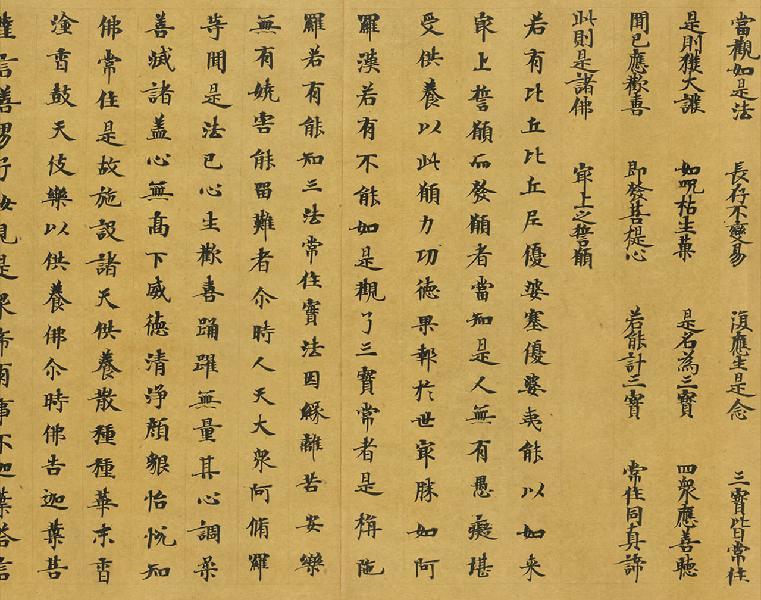 當觀如是法　長存不變易　復應生是念　三寶皆常住
是則獲大護　如呪枯生菓　是名為三寶　四衆應善聽
聞已應歡喜　即發菩提心　若能計三寶　常住同真諦
此則是諸佛　冣上之誓願
若有比丘比丘尼優婆塞優婆夷能以如来
冣上誓願而發願者當知是人無有愚癡堪
受供養以此願力功德果報於世冣勝如阿
羅漢若有不能如是觀了三寶常者是栴陁
羅若有能知三法常住實法因緣離苦安樂
無有嬈害能留難者尒時人天大衆阿脩羅
等聞是法已心生歡喜踊躍無量其心調柔
善滅諸蓋心無高下威德清淨顏貌怡悅知
佛常住是故施設諸天供養散種種華末香
塗香鼓天伎樂以供養佛尒時佛告迦葉菩
薩言善男子汝見是衆希有事不迦葉荅言